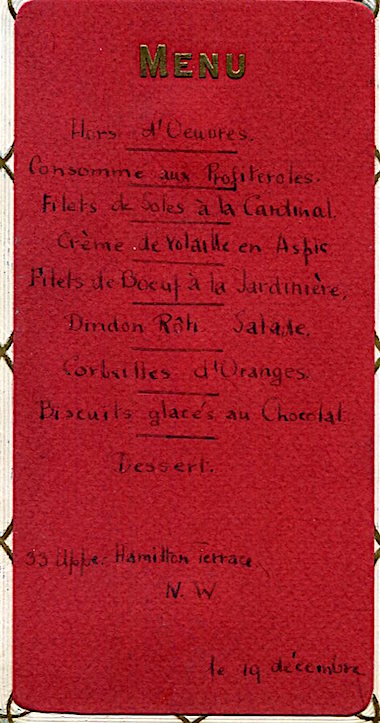 MENU
Hors d'Oeuvres.
Consommé aux Profiteroles.
Filets de Soles à la Cardinal.
Crème de volaille en Aspic
Filets de Boeuf à la Jardinière.
Dindon Rôti Salade.
Corbeilles d'Oranges.
Biscuits glacés au Chocolat.
Dessert.
33 Uppe. Hamilton Terrace
N. W
le 19 décembre